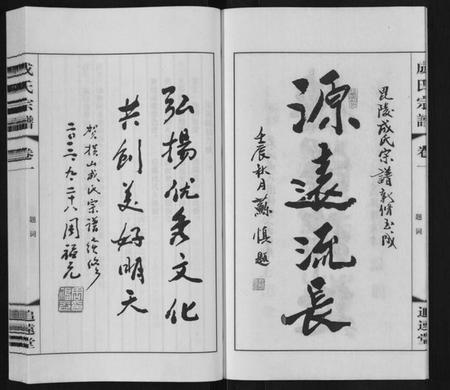 成氏宗譜 卷一 題詞 追遠堂
毘陵成氏宗譜新脩玉成
源遠流長
壬辰秋月 蘇慎題
弘揚优秀文化
共創美好明天
賀橫山成氏宗譜續修
二〇一二.九.二十八 周裕元
成氏宗譜 卷一 題詞 追遠堂